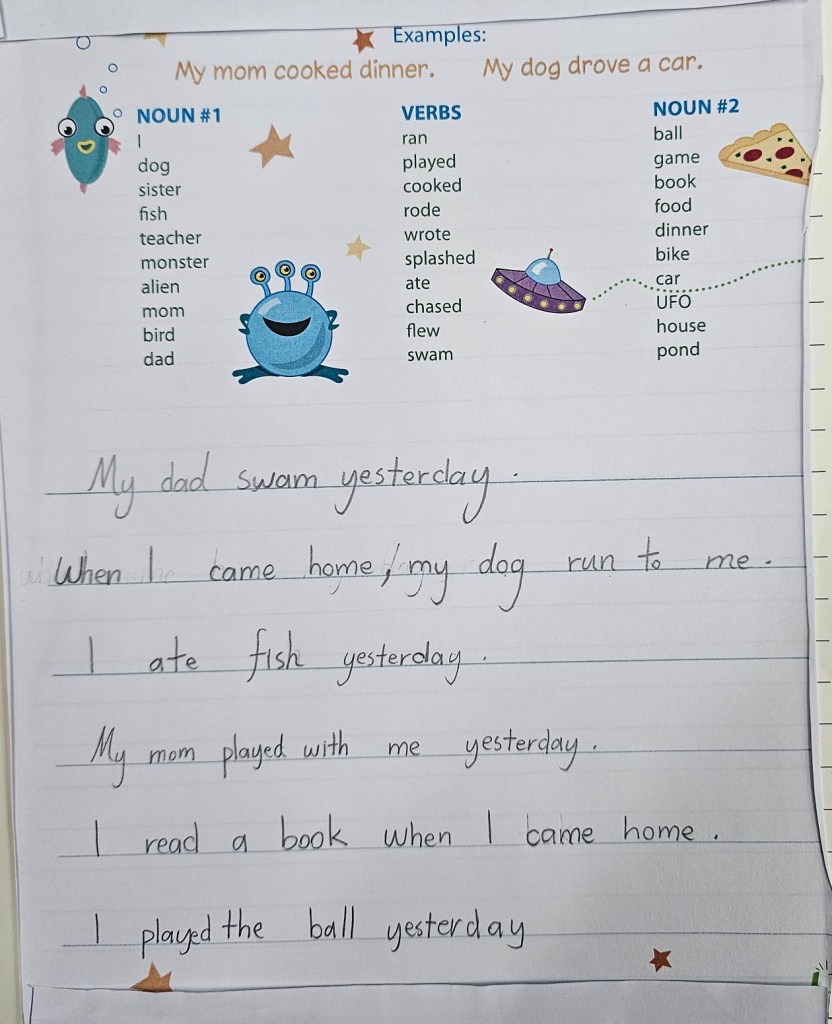 Examples:
My mom cooked dinner. My dog drove a car.
NOUN #1 VERBS NOUN #2
I ran ball
dog played game
sister cooked book
fish rode food
teacher wrote dinner
monster splashed bike
alien ate car
mom chased UFO
bird flew house
dad swam pond
My dad swam yesterday.
When I came home, my dog run to me.
I ate fish yesterday.
My mom played with me yesterday.
I read a book when I came home.
I played the ball yesterday